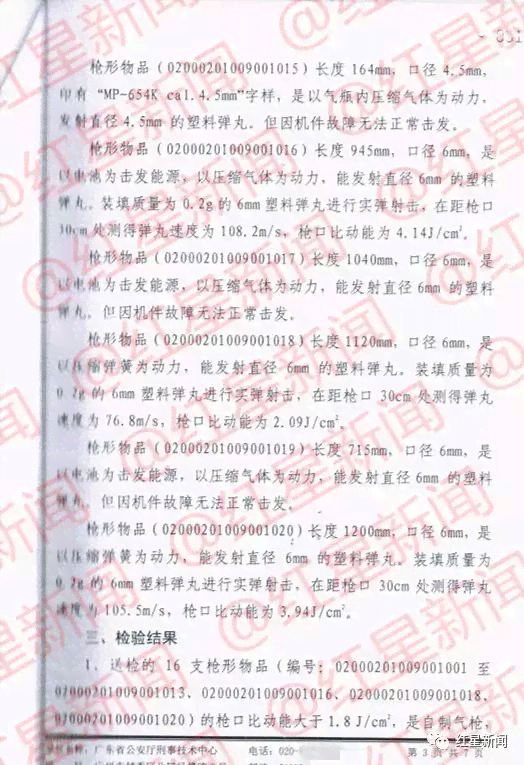 · 831
枪形物品（02000201009001015）长度 164mm，口径 4.5mm，
印有“MP-654K cal.4.5mm”字样，是以气瓶内压缩气体为动力，
发射直径 4.5mm 的塑料弹丸。但因机件故障无法正常击发。
枪形物品（02000201009001016）长度 945mm，口径 6mm，是
以电池为击发能源，以压缩气体为动力，能发射直径 6mm 的塑料
弹丸。装填质量为 0.2g 的 6mm 塑料弹丸进行实弹射击，在距枪口
30cm 处测得弹丸速度为 108.2m/s，枪口比动能为 4.14J/cm²。
枪形物品（02000201009001017）长度 1040mm，口径 6mm，是
以电池为击发能源，以压缩气体为动力，能发射直径 6mm 的塑料
弹丸。但因机件故障无法正常击发。
枪形物品（02000201009001018）长度 1120mm，口径 6mm，是
以压缩弹簧为动力，能发射直径 6mm 的塑料弹丸。装填质量为
0.2g 的 6mm 塑料弹丸进行实弹射击，在距枪口 30cm 处测得弹丸
速度为 76.8m/s，枪口比动能为 2.09J/cm²。
枪形物品（02000201009001019）长度 715mm，口径 6mm，是
以电池为击发能源，以压缩气体为动力，能发射直径 6mm 的塑料
弹丸。但因机件故障无法正常击发。
枪形物品（02000201009001020）长度 1200mm，口径 6mm，是
以压缩弹簧为动力，能发射直径 6mm 的塑料弹丸。装填质量为
0.2g 的 6mm 塑料弹丸进行实弹射击，在距枪口 30cm 处测得弹丸
速度为 105.5m/s，枪口比动能为 3.94J/cm²。
三、检验结果
1、送检的 16 支枪形物品（编号：02000201009001001 至
02000201009001013、02000201009001016、02000201009001018、
02000201009001020）的枪口比动能大于 1.8 J/cm²，是自制气枪，
广东省公安厅刑事技术中心 电话：020- 第 3 页 共 7 页
@红星新闻
红星新闻